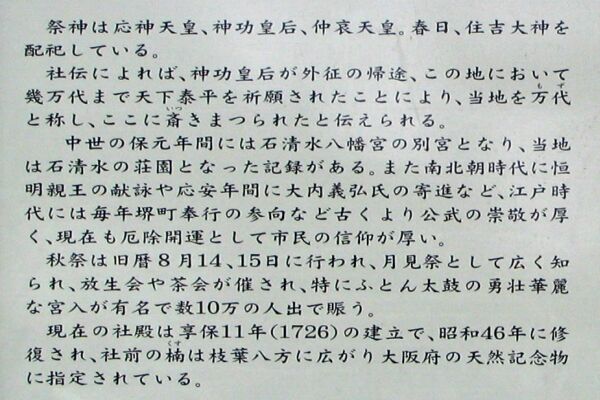 祭神は応神天皇、神功皇后、仲哀天皇。春日、住吉大神を
配祀している。
社伝によれば、神功皇后が外征の帰途、この地において
幾万代まで天下泰平を祈願されたことにより、当地を万代
と称し、ここに斎きまつられたと伝えられる。
中世の保元年間には石清水八幡宮の別宮となり、当地
は石清水の荘園となった記録がある。また南北朝時代に恒
明親王の献詠や応安年間に大内義弘氏の寄進など、江戸時
代には毎年堺町奉行の参向など古くより公武の崇敬が厚
く、現在も厄除開運として市民の信仰が厚い。
秋祭は旧暦8月14、15日に行われ、月見祭として広く知
られ、放生会や茶会が催され、特にふとん太鼓の勇壮華麗
な宮入が有名で数10万の人出で賑う。
現在の社殿は享保11年(1726)の建立で、昭和46年に修
復され、社前の楠は枝葉八方に広がり大阪府の天然記念物
に指定されている。